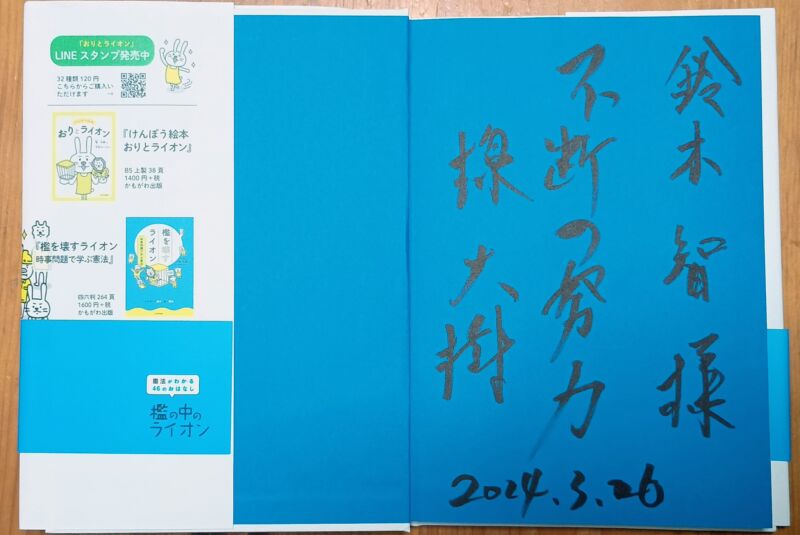 「おりとライオン」
LINE スタンプ発売中
32 種類 120 円
こちらからご購入い
ただけます →
おりとライオン
『けんぽう絵本
おりとライオン』
B5 上製 38 頁
1400 円+税
かもがわ出版
『檻を壊すライオン
時事問題で学ぶ憲法』
四六判 264 頁
1600 円+税
かもがわ出版
檻を壊す
ライオン
憲法がわかる
46のおはなし
檻の中の
ライオン
鈴木智様
不断の努力
楾大樹
2024.3.26